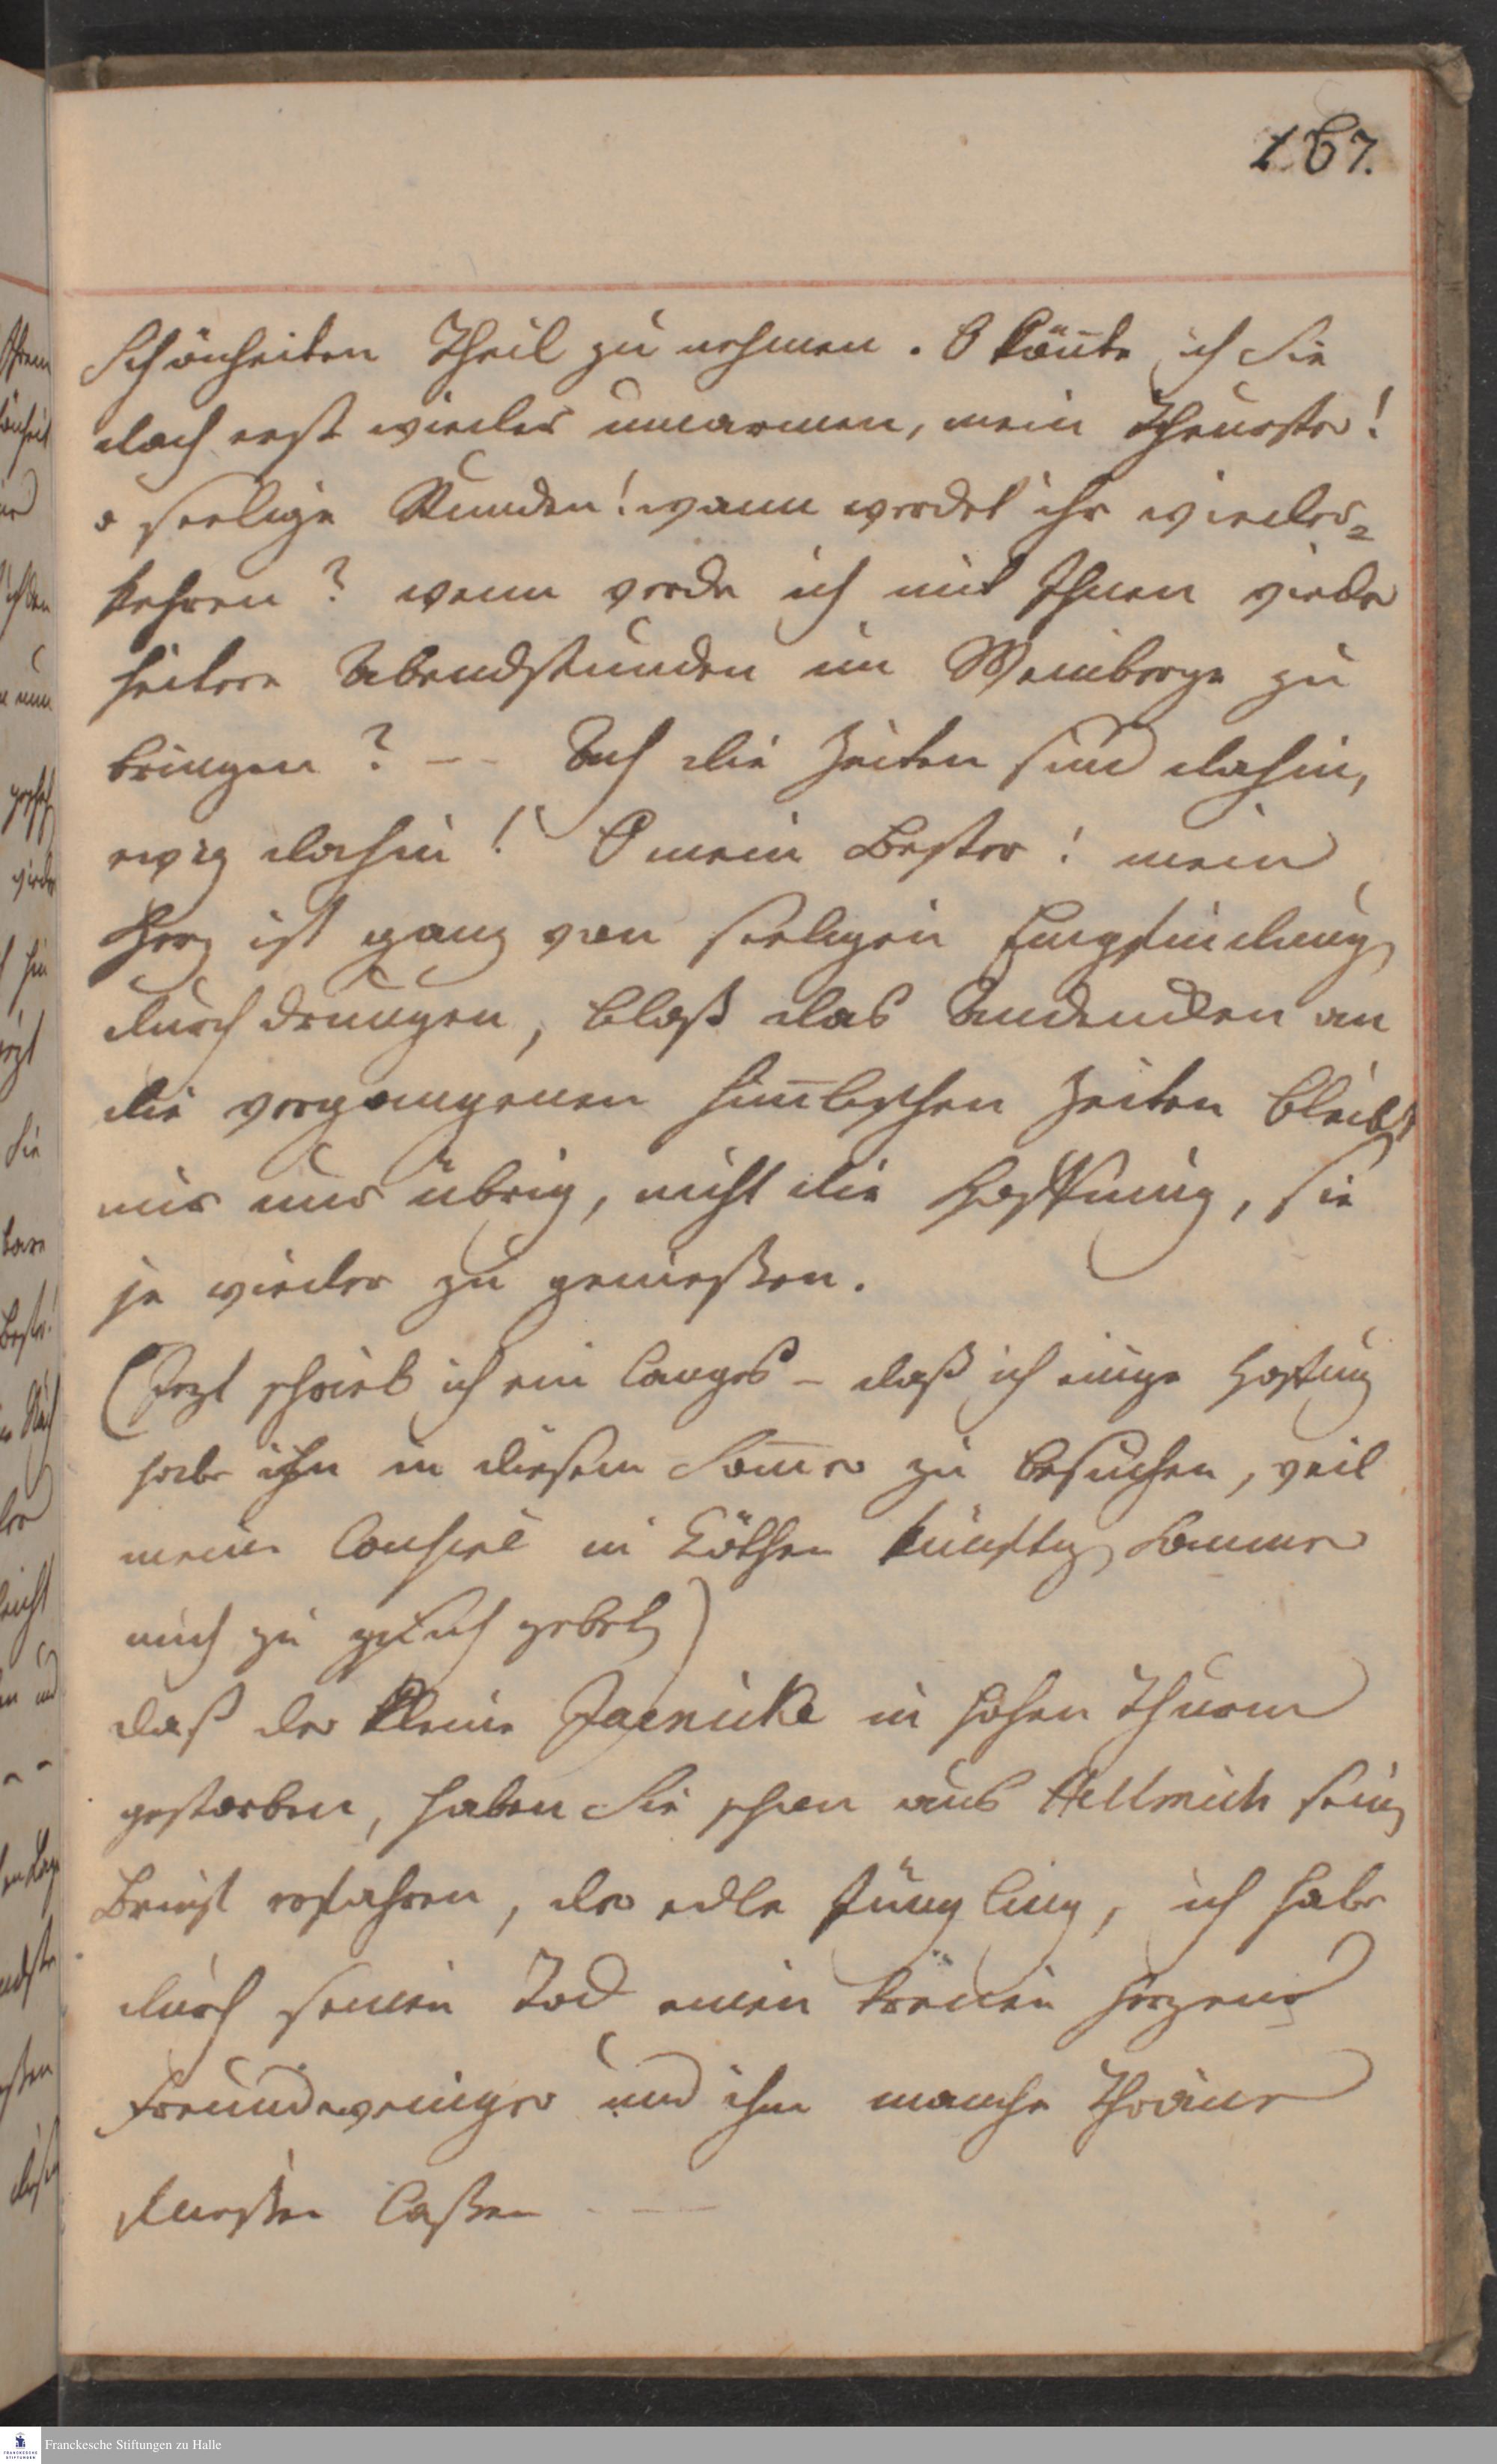 167.
Schönheiten Theil zu nehmen. O könnte ich Sie
doch erst wieder umarmen, mein Theurster!
o seelige Stunden! wann werdet ihr wieder=
kehren? wenn werde ich mit Ihnen wieder
heitere Abendstunden im Weinberge zu
bringen? -- Ach die Zeiten sind dahin,
ewig dahin! O mein Bester! mein
Herz ist ganz von seeligen Empfindung
durchdrungen, bloß das Andencken an
die vergangenen himlischen Zeiten bleibt
mir nur übrig, nicht die Hoffnung, sie
je wieder zu genießen.
(Jezt schrieb ich ein langes - daß ich einige Hofnung
habe ihn in diesem Somer zu besuchen, weil
meine in Cöthen künftig Sommer
mich zu gebet)
daß der kleine Jaenicke in hohen Thurm
gestorben, haben Sie schon aus Hellmuth sein
Brief erfahren, der edle Jüngling, ich habe
durch seinen Tod einen treuen Herzens
Freund weniger und ihm manche Thräne
fließen laßen --
Franckesche Stiftungen zu Halle